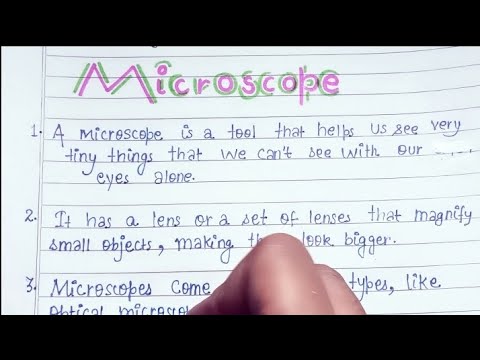 Microscope
1. A microscope is a tool that helps us see very
tiny things that we can't see with our
eyes alone.
2. It has a lens or a set of lenses that magnify
small objects, making look bigger.
3. Microscopes come types, like
optical